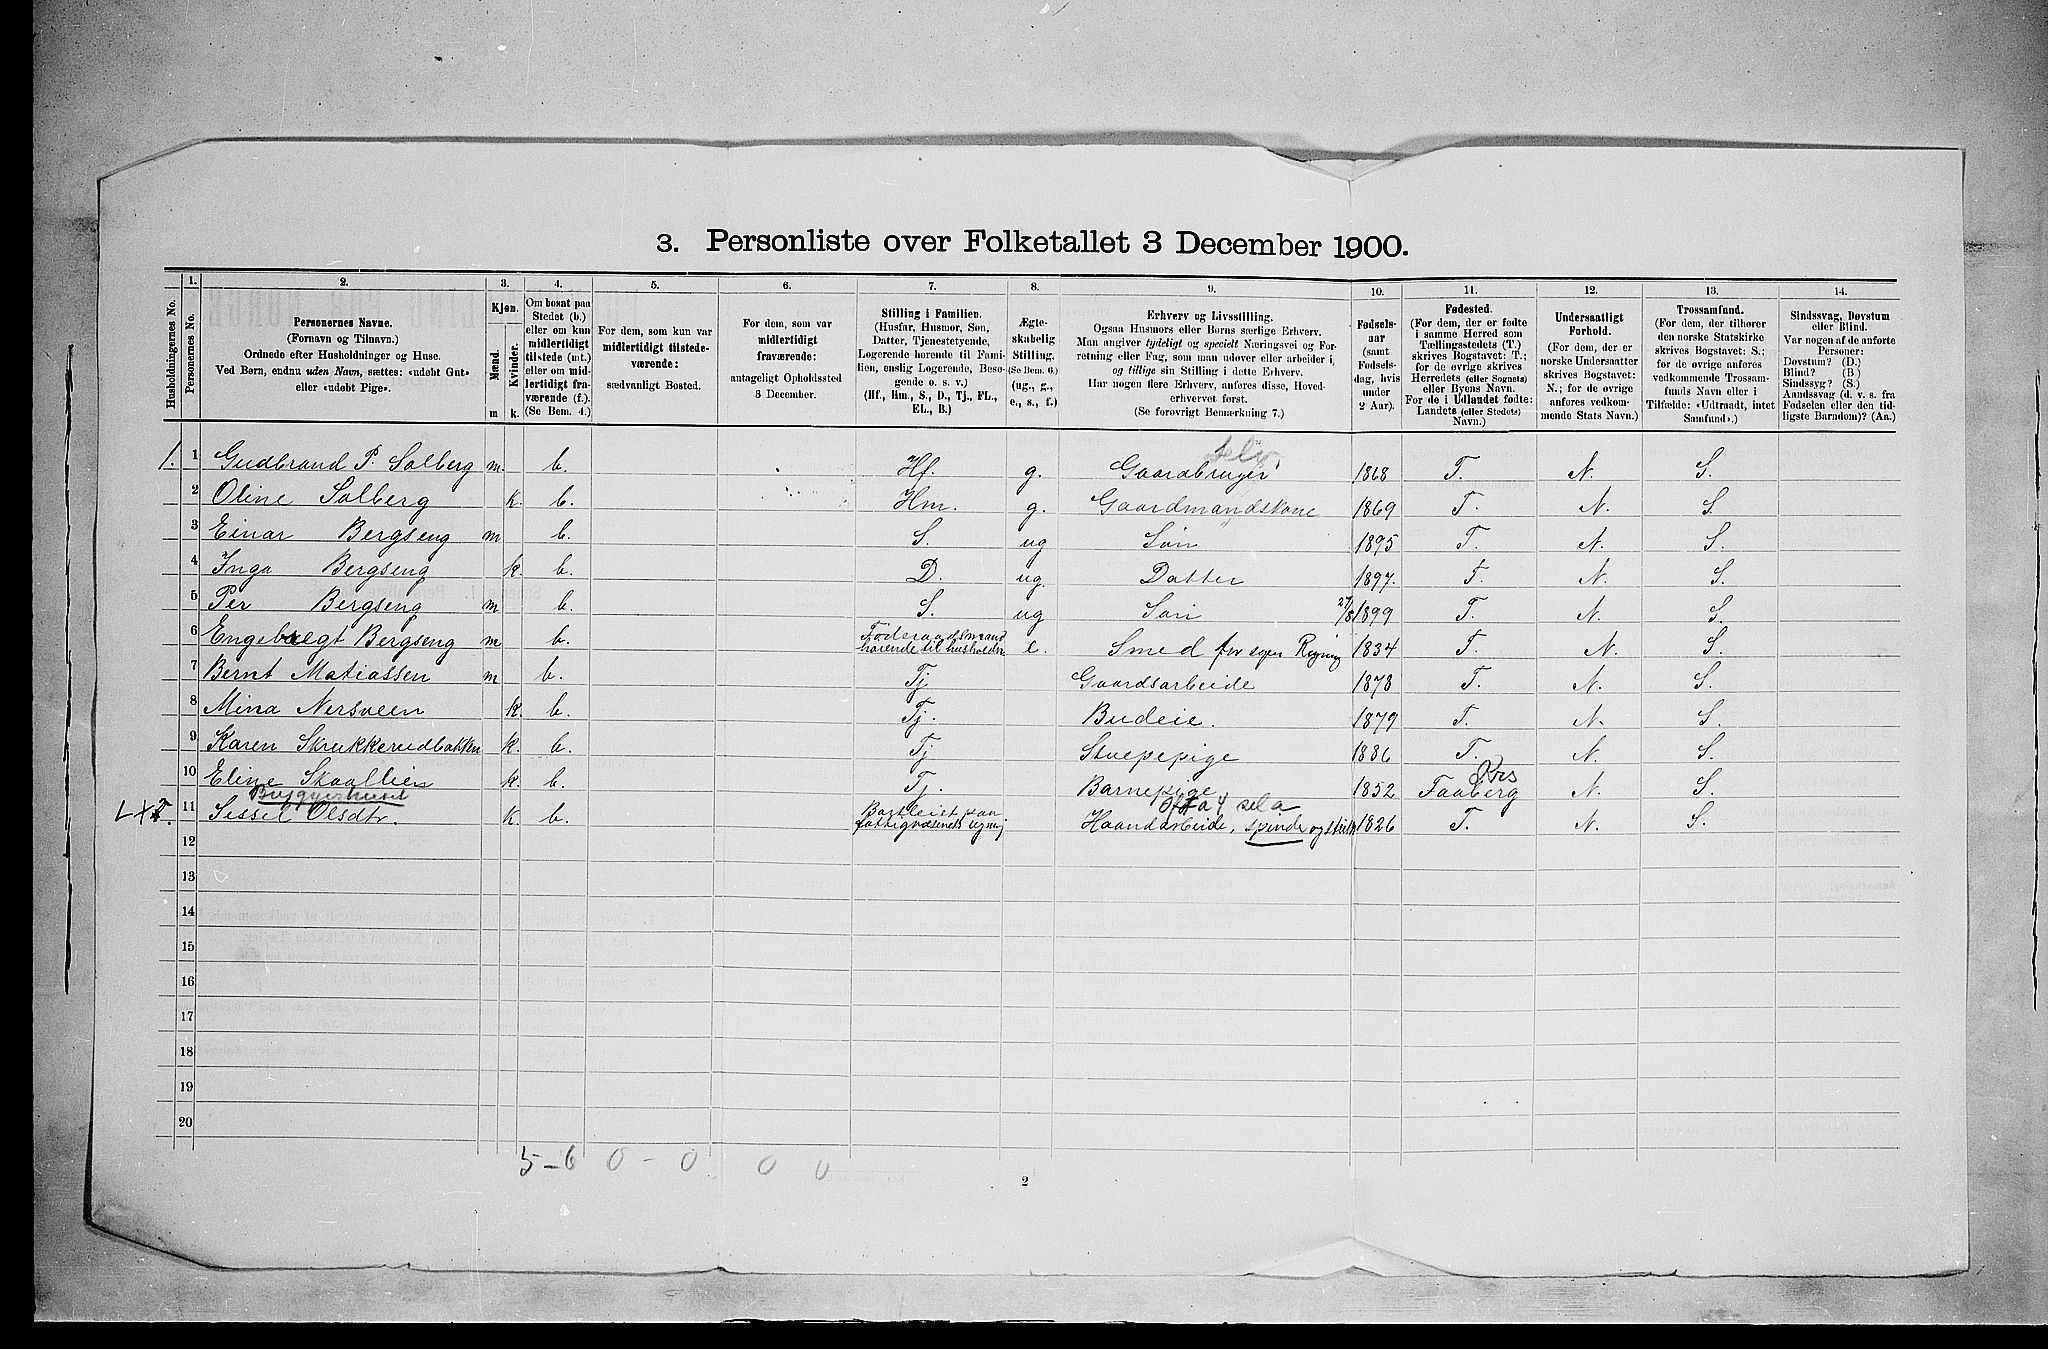 3. Personliste over Folketallet 3 December 1900.
1. 2. 3. 4. 5. 6. 7. 8. 9. 10. 11. 12. 13. 14.
Husholdningernes No.
Personernes No.
Personernes Navne.
(Fornavn og Tilnavn.)
Ordnede efter Husholdninger og Huse.
Ved Børn, endnu uden Navn, sættes: «udøbt Gut»
eller «udøbt Pige».
Kjøn.
Mænd.
Kvinder.
m k.
Om bosat paa
Stedet (b.)
eller om kun
midlertidigt
tilstede (mt.)
eller om mid-
lertidigt fra-
værende (f.).
(Se Bem. 4.)
For dem, som kun var
midlertidigt tilstede-
værende:
sædvanligt Bosted.
For dem, som var
midlertidigt
fraværende:
antageligt Opholdssted
3 December.
Stilling i Familien.
(Husfar, Husmor, Søn,
Datter, Tjenestetyende,
Logerende hørende til Fami-
lien, enslig Logerende, Besø-
gende o. s. v.)
(Hf., Hm., S., D., Tj., FL.,
EL., B.)
Ægte-
skabelig
Stilling.
(Se Bem. 6.)
(ug., g.,
e., s., f.)
Erhverv og Livsstilling.
Ogsaa Husmors eller Børns særlige Erhverv.
Man angiver tydeligt og specielt Næringsvei og For-
retning eller Fag, som man udøver eller arbeider i,
og tillige sin Stilling i dette Erhverv.
Har nogen flere Erhverv, anføres disse, Hoved-
erhvervet først.
(Se forøvrigt Bemærkning 7.)
Fødsels-
aar
(samt
Fødsels-
dag, hvis
under
2 Aar).
Fødested.
(For dem, der er fødte
i samme Herred som
Tællingsstedets (T.)
skrives Bogstavet: T.;
for de øvrige skrives
Herredets (eller Sognets)
eller Byens Navn.
For de i Udlandet fødte:
Landets (eller Stedets)
Navn.)
Undersaatligt
Forhold.
(For dem, der er
norske Undersaatter
skrives Bogstavet:
N.; for de øvrige
anføres vedkom-
mende Stats Navn.)
Trossamfund.
(For dem, der tilhører
den norske Statskirke
skrives Bogstavet: S.;
for de øvrige anføres
vedkommende Trossam-
funds Navn eller i
Tilfælde: «Udtraadt, intet
Samfund».)
Sindssvag, Døvstum
eller Blind.
Var nogen af de anførte
Personer:
Døvstum? (D.)
Blind? (B.)
Sindssyg? (S.)
Aandssvag (d. v. s. fra
Fødselen eller den tid-
ligste Barndom)? (Aa.)
selv
1. 1 Gudbrand P. Solberg m. b. Hf. g. Gaardbruger 1868 T. N. S.
2 Oline Solberg k. b. Hm. g. Gaardmandskone 1869 T. N. S.
3 Einar Bergseng m b. S. ug Søn 1895 T. N. S.
4 Inga Bergseng k. b. D. ug. Datter 1897. T. N. S.
5 Per Bergseng m b. S. ug Søn 27/8 1899 T. N. S.
6 Engebregt Bergseng m b. Føderaadsmand hørende til husholdn. e. Smed for egen Regning 1834 T. N. S.
7 Bernt Matiassen m b. Tj Gaardsarbeide 1878 T. N. S.
8 Mina Nersveen k. b. Tj. Budeie. 1879 T. N. S.
9 Karen Skrukkerudbakken k. b. Tj Stuepepige 1886 T. N. S.
Krs
10 Eline Skaallien k. b. Tj. Barnepige 1852 Faaberg N. S.
Byggerhuset
2. 11 Sessel Olsdtr. k. b. Bortleiet paa fattigvæsenets Haandarbeide, spinde og strik 1826 T. N. S.
12
13
14
15
16
17
18
19
20
5-6 0-0 0 0
2